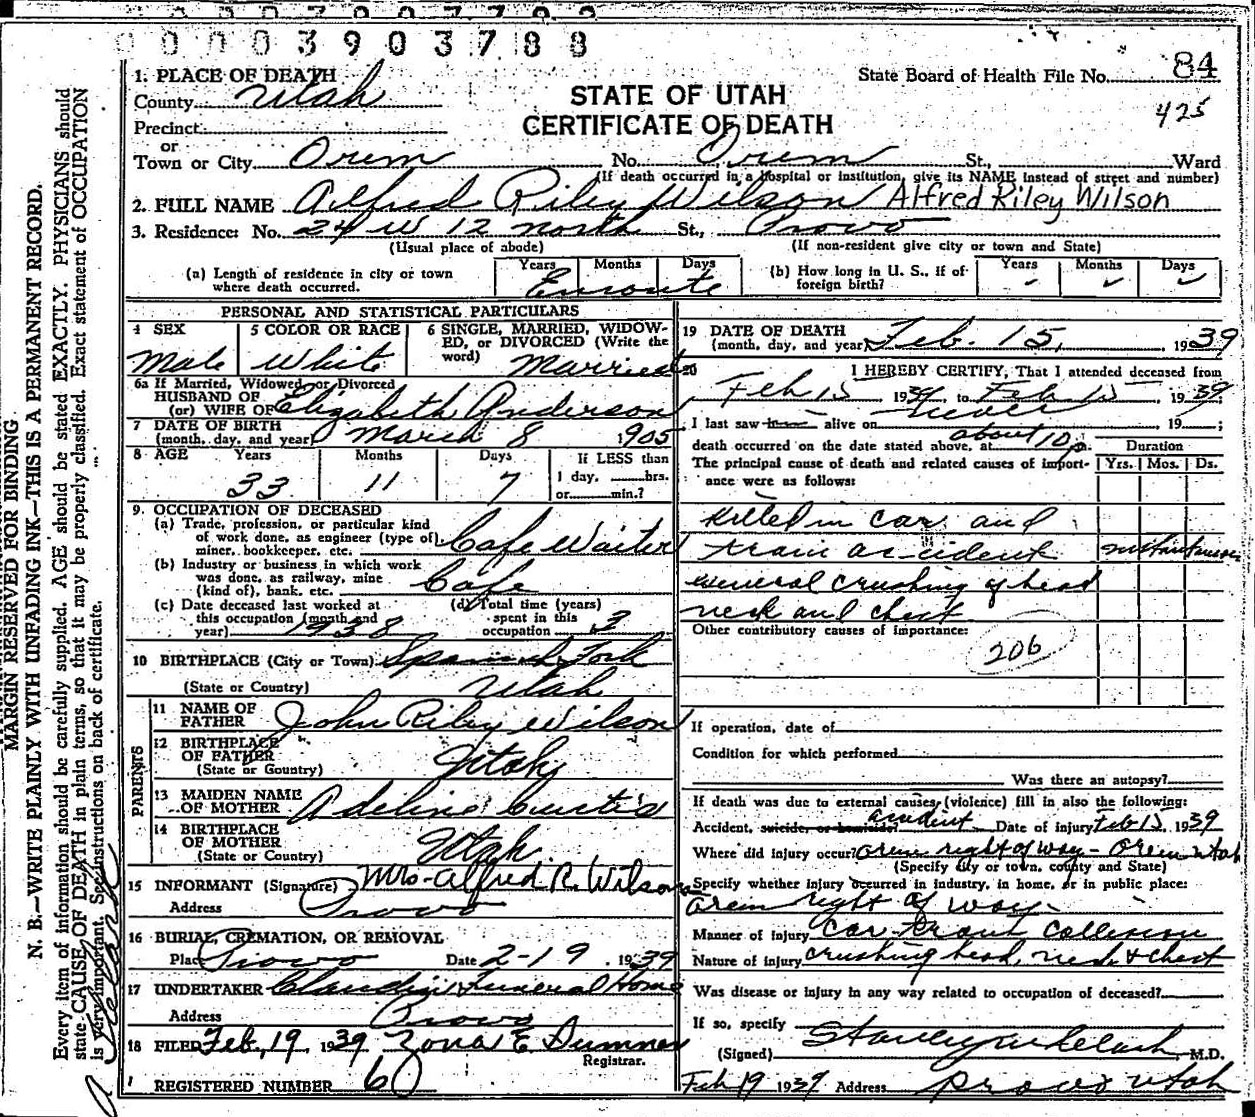 0 0 0 3 9 0 3 7 8 8
1. PLACE OF DEATH
State Board of Health File No. 84
County Utah
STATE OF UTAH
425
Precinct
CERTIFICATE OF DEATH
or
Town or City Orem No. Orem St., Ward
(If death occurred in a hospital or institution, give its NAME instead of street and number)
2. FULL NAME Alfred Riley Wilson Alfred Riley Wilson
3. Residence: No. 24 W 12 north St., Provo
(Usual place of abode) (If non-resident give city or town and State)
(a) Length of residence in city or town where death occurred. Years Months Days
Enroute
(b) How long in U. S., if of foreign birth? Years Months Days
PERSONAL AND STATISTICAL PARTICULARS
4 SEX 5 COLOR OR RACE 6 SINGLE, MARRIED, WIDOWED, or DIVORCED (Write the word)
Male White Married
6a If Married, Widowed, or Divorced
HUSBAND OF
(or) WIFE OF Elizabeth Anderson
7 DATE OF BIRTH
(month, day, and year) March 8 1905
8 AGE Years Months Days If LESS than
33 11 7 1 day, hrs.
or min.?
9. OCCUPATION OF DECEASED
(a) Trade, profession, or particular kind
of work done, as engineer (type of)
miner, bookkeeper, etc. Cafe Waiter
(b) Industry or business in which work
was done, as railway, mine
(kind of), bank, etc. Cafe
(c) Date deceased last worked at
this occupation (month and
year) 1938
(d) Total time (years)
spent in this
occupation 3
10 BIRTHPLACE (City or Town) Spanish Fork
(State or Country) Utah
PARENTS
11 NAME OF
FATHER John Riley Wilson
12 BIRTHPLACE
OF FATHER
(State or Country) Utah
13 MAIDEN NAME
OF MOTHER Adeline Curtis
14 BIRTHPLACE
OF MOTHER
(State or Country) Utah
15 INFORMANT (Signature) Mrs. Alfred R. Wilson
Address Provo
16 BURIAL, CREMATION, OR REMOVAL
Place Provo Date 2-19, 1939
17 UNDERTAKER Claudin Funeral Home
Address Provo
18 FILED Feb, 19 1939 Zona E
Registrar.
REGISTERED NUMBER 60
19 DATE OF DEATH
(month, day, and year) Feb. 15, 1939
20 I HEREBY CERTIFY, That I attended deceased from
Feb 15 1939, to Feb 15, 1939,
I last saw him alive on never, 19 ;
death occurred on the date stated above, at about 10 p.
The principal cause of death and related causes of importance were as follows:
Duration
Yrs. Mos. Ds.
Killed in car and
train accident instantaneous
General crushing of head
neck and chest
Other contributory causes of importance:
206
If operation, date of
Condition for which performed
Was there an autopsy?
If death was due to external causes (violence) fill in also the following:
Accident, suicide, or homicide? accident Date of injury Feb 15, 1939
Where did injury occur? Orem right of way - Orem Utah
(Specify city or town, county and State)
Specify whether injury occurred in industry, in home, or in public place:
Orem right of way
Manner of injury Car-train Collision
Nature of injury Crushing head, neck & chest
Was disease or injury in any way related to occupation of deceased?
If so, specify
(Signed) Stanley M.D.
Feb 19 1939 Address Provo Utah
MARGIN RESERVED FOR BINDING
N. B.—WRITE PLAINLY WITH UNFADING INK—THIS IS A PERMANENT RECORD.
Every item of information should be carefully supplied. AGE should be stated EXACTLY. PHYSICIANS should
state CAUSE OF DEATH in plain terms, so that it may be properly classified. Exact statement of OCCUPATION
is very important. See instructions on back of certificate.